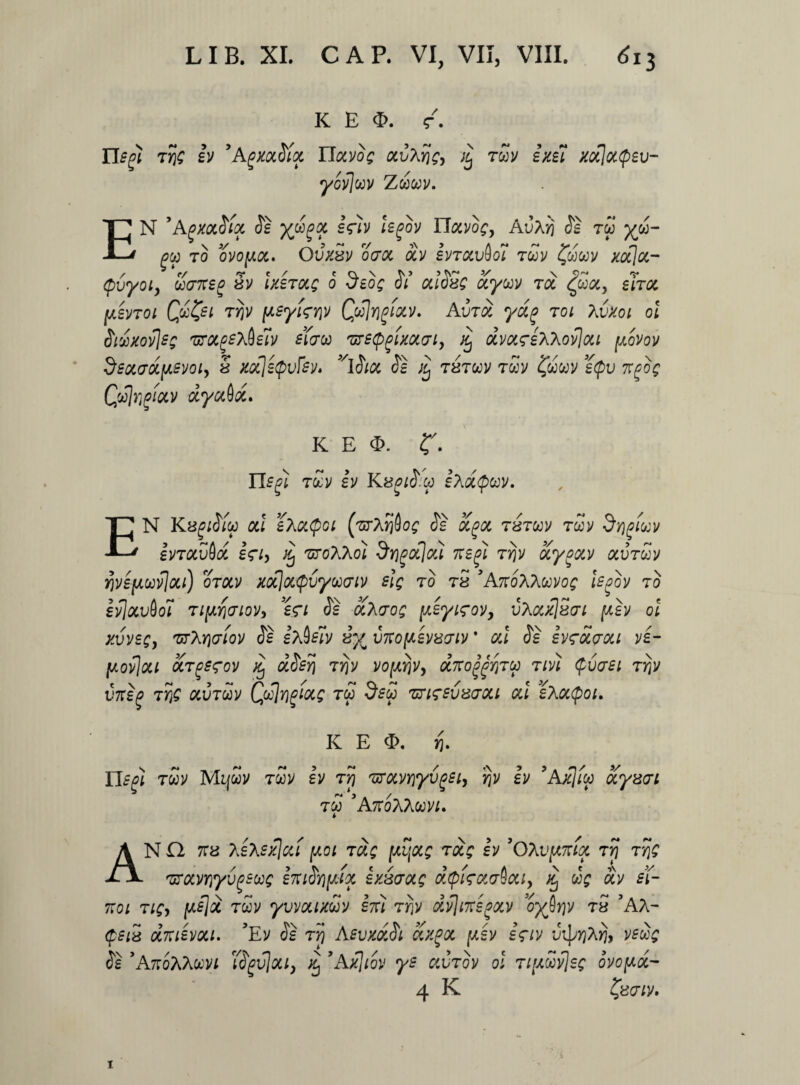 LIB. XI. CAP. VI, VII, VIII. 613
ΚΕΦ. ϛ΄.
Περὶ τῆς ἐν Ἀρκαδίᾳ Πανὸς αὐλῆς, ϗ τῶν ἐκεῖ καταφευ-
γόντων Ζώων.
ἘΝ Ἀρκαδίᾳ δὲ χώρᾳ ἐϛὶν ἱερὸν Πανὸς, Αὐλὴ δὲ τῷ χώ-
ρῳ τὸ ὄνομα. Οὐκȣν ὅσα ἂν ἐνταυθοῖ τῶν ζώων κατα-
φύγοι, ὥσπερ ȣν ἱκέτας ὁ ϑεὸς δι’ αἰδȣς ἄγων τὰ ζῶα, εἶτα
μέντοι ζώζει τὴν μεγίϛην ζωτηρίαν. Αὐτὰ γάρ τοι λύκοι οἱ
διώκοντες ϖαρελθεῖν εἴσω ϖεφρίκασι, ϗ ἀναϛέλλονται μόνον
ϑεασάμενοι, ȣ κατέφυγεν. Ἰδίᾳ δὲ ϗ τȣτων τῶν ζώων ἔφυ πρὸς
ζωτηρίαν ἀγαθά.
ΚΕΦ. ζ΄.
Περὶ τῶν ἐν Κȣριδίῳ ἐλάφων.
ἘΝ Κȣριδίῳ αἱ ἔλαφοι (ϖλῆθος δὲ ἄρα τȣτων τῶν ϑηρίων
ἐνταῦθά ἐϛι, ϗ ϖολλοὶ ϑηραταὶ περὶ τὴν ἄγραν αὐτῶν
ἠνέμωνται) ὅταν καταφύγωσιν εἰς τὸ τȣ Ἀπόλλωνος ἱερὸν τὸ
ἐνταυθοῖ τιμήσιον, ἔϛι δὲ ἄλσος μέγιϛον, ὑλακτȣσι μὲν οἱ
κύνες, ϖλησίον δὲ ἐλθεῖν ȣχ ὑπομένȣσιν· αἱ δὲ ἐνϛᾶσαι νέ-
μονται ἄτρεϛον ϗ ἀδεῆ τὴν νομὴν, ἀποῤῥήτῳ τινὶ φύσει τὴν
ὑπὲρ τῆς αὐτῶν ζωτηρίας τῷ ϑεῷ ϖιϛεύȣσαι αἱ ἔλαφοι.
ΚΕΦ. η΄.
Περὶ τῶν Μυῶν τῶν ἐν τῇ ϖανηγύρει, ἣν ἐν Ἀκτίῳ ἄγȣσι
τῷ Ἀπόλλωνι.
ἈΝΩ πȣ λέλεκταί μοι τὰς μυίας τὰς ἐν Ὀλυμπίᾳ τῇ τῆς
ϖανηγύρεως ἐπιδημίᾳ ἑκȣσας ἀφίϛασθαι, ϗ ὡς ἂν εἴ-
ποι τις, μετὰ τῶν γυναικῶν ἐπὶ τὴν ἀντιπέραν ὄχθην τȣ Ἀλ-
φειȣ ἀπιέναι. Ἐν δὲ τῇ Λευκάδι ἄκρα μέν ἐϛιν ὑψηλὴ, νεὼς
δὲ Ἀπόλλωνι ἵδρυται, ϗ Ἄκτιόν γε αὐτὸν οἱ τιμῶντες ὀνομά-
4 K ζȣσιν.